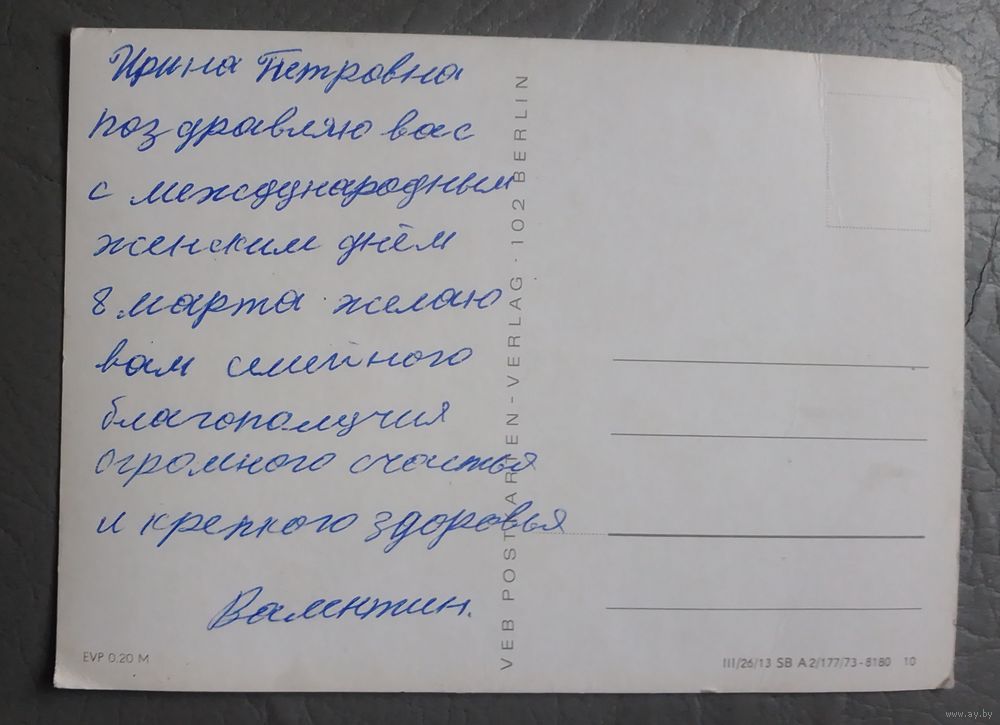 Ирина Петровна
поздравляю вас
с международным
женским днём
8 марта желаю
вам семейного
благополучия
огромного счастья
и крепкого здоровья
Валентин.
VEB POSTKARTEN-VERLAG · 102 BERLIN
EVP 0.20 M
III/26/13 SB A 2/177/73-8180 10
www.ay.by